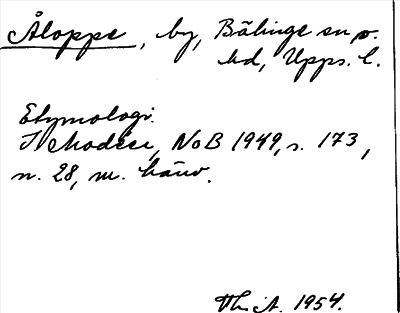 Åloppe, by, Bälinge sn o.
hd, Upps. l.
Etymologi.
I Modéer, NoB 1949, s. 173,
n. 28, m. hänv.
1954.